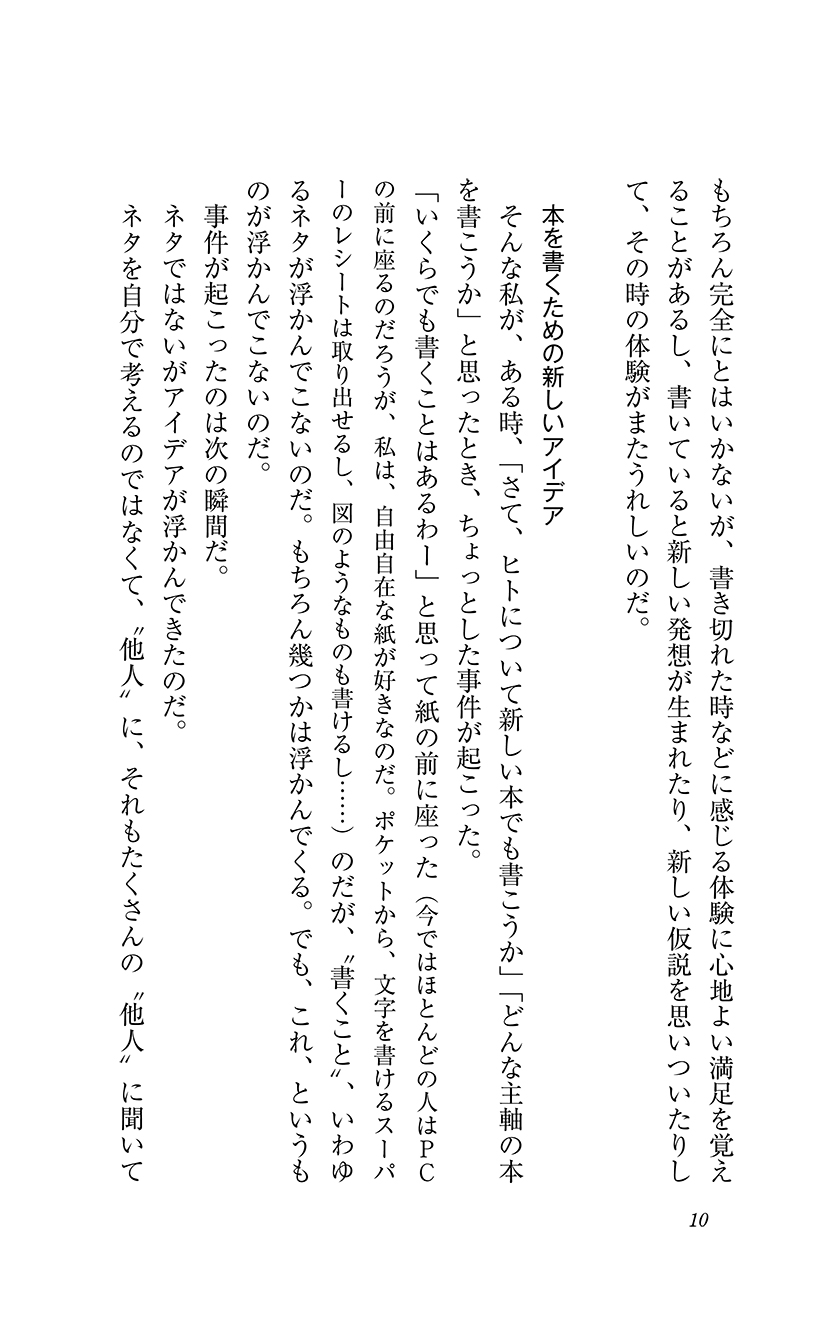 もちろん完全にとはいかないが、書き切れた時などに感じる体験に心地よい満足を覚え
ることがあるし、書いていると新しい発想が生まれたり、新しい仮説を思いついたりし
て、その時の体験がまたうれしいのだ。
本を書くための新しいアイデア
そんな私が、ある時、「さて、ヒトについて新しい本でも書こうか」「どんな主軸の本
を書こうか」と思ったとき、ちょっとした事件が起こった。
「いくらでも書くことはあるわー」と思って紙の前に座った（今ではほとんどの人はPC
の前に座るのだろうが、私は、自由自在な紙が好きなのだ。ポケットから、文字を書けるスーパ
ーのレシートは取り出せるし、図のようなものも書けるし……）のだが、〝書くこと〟、いわゆ
るネタが浮かんでこないのだ。もちろん幾つかは浮かんでくる。でも、これ、というも
のが浮かんでこないのだ。
事件が起こったのは次の瞬間だ。
ネタではないがアイデアが浮かんできたのだ。
ネタを自分で考えるのではなくて、〝他人〟に、それもたくさんの〝他人〟に聞いて
10